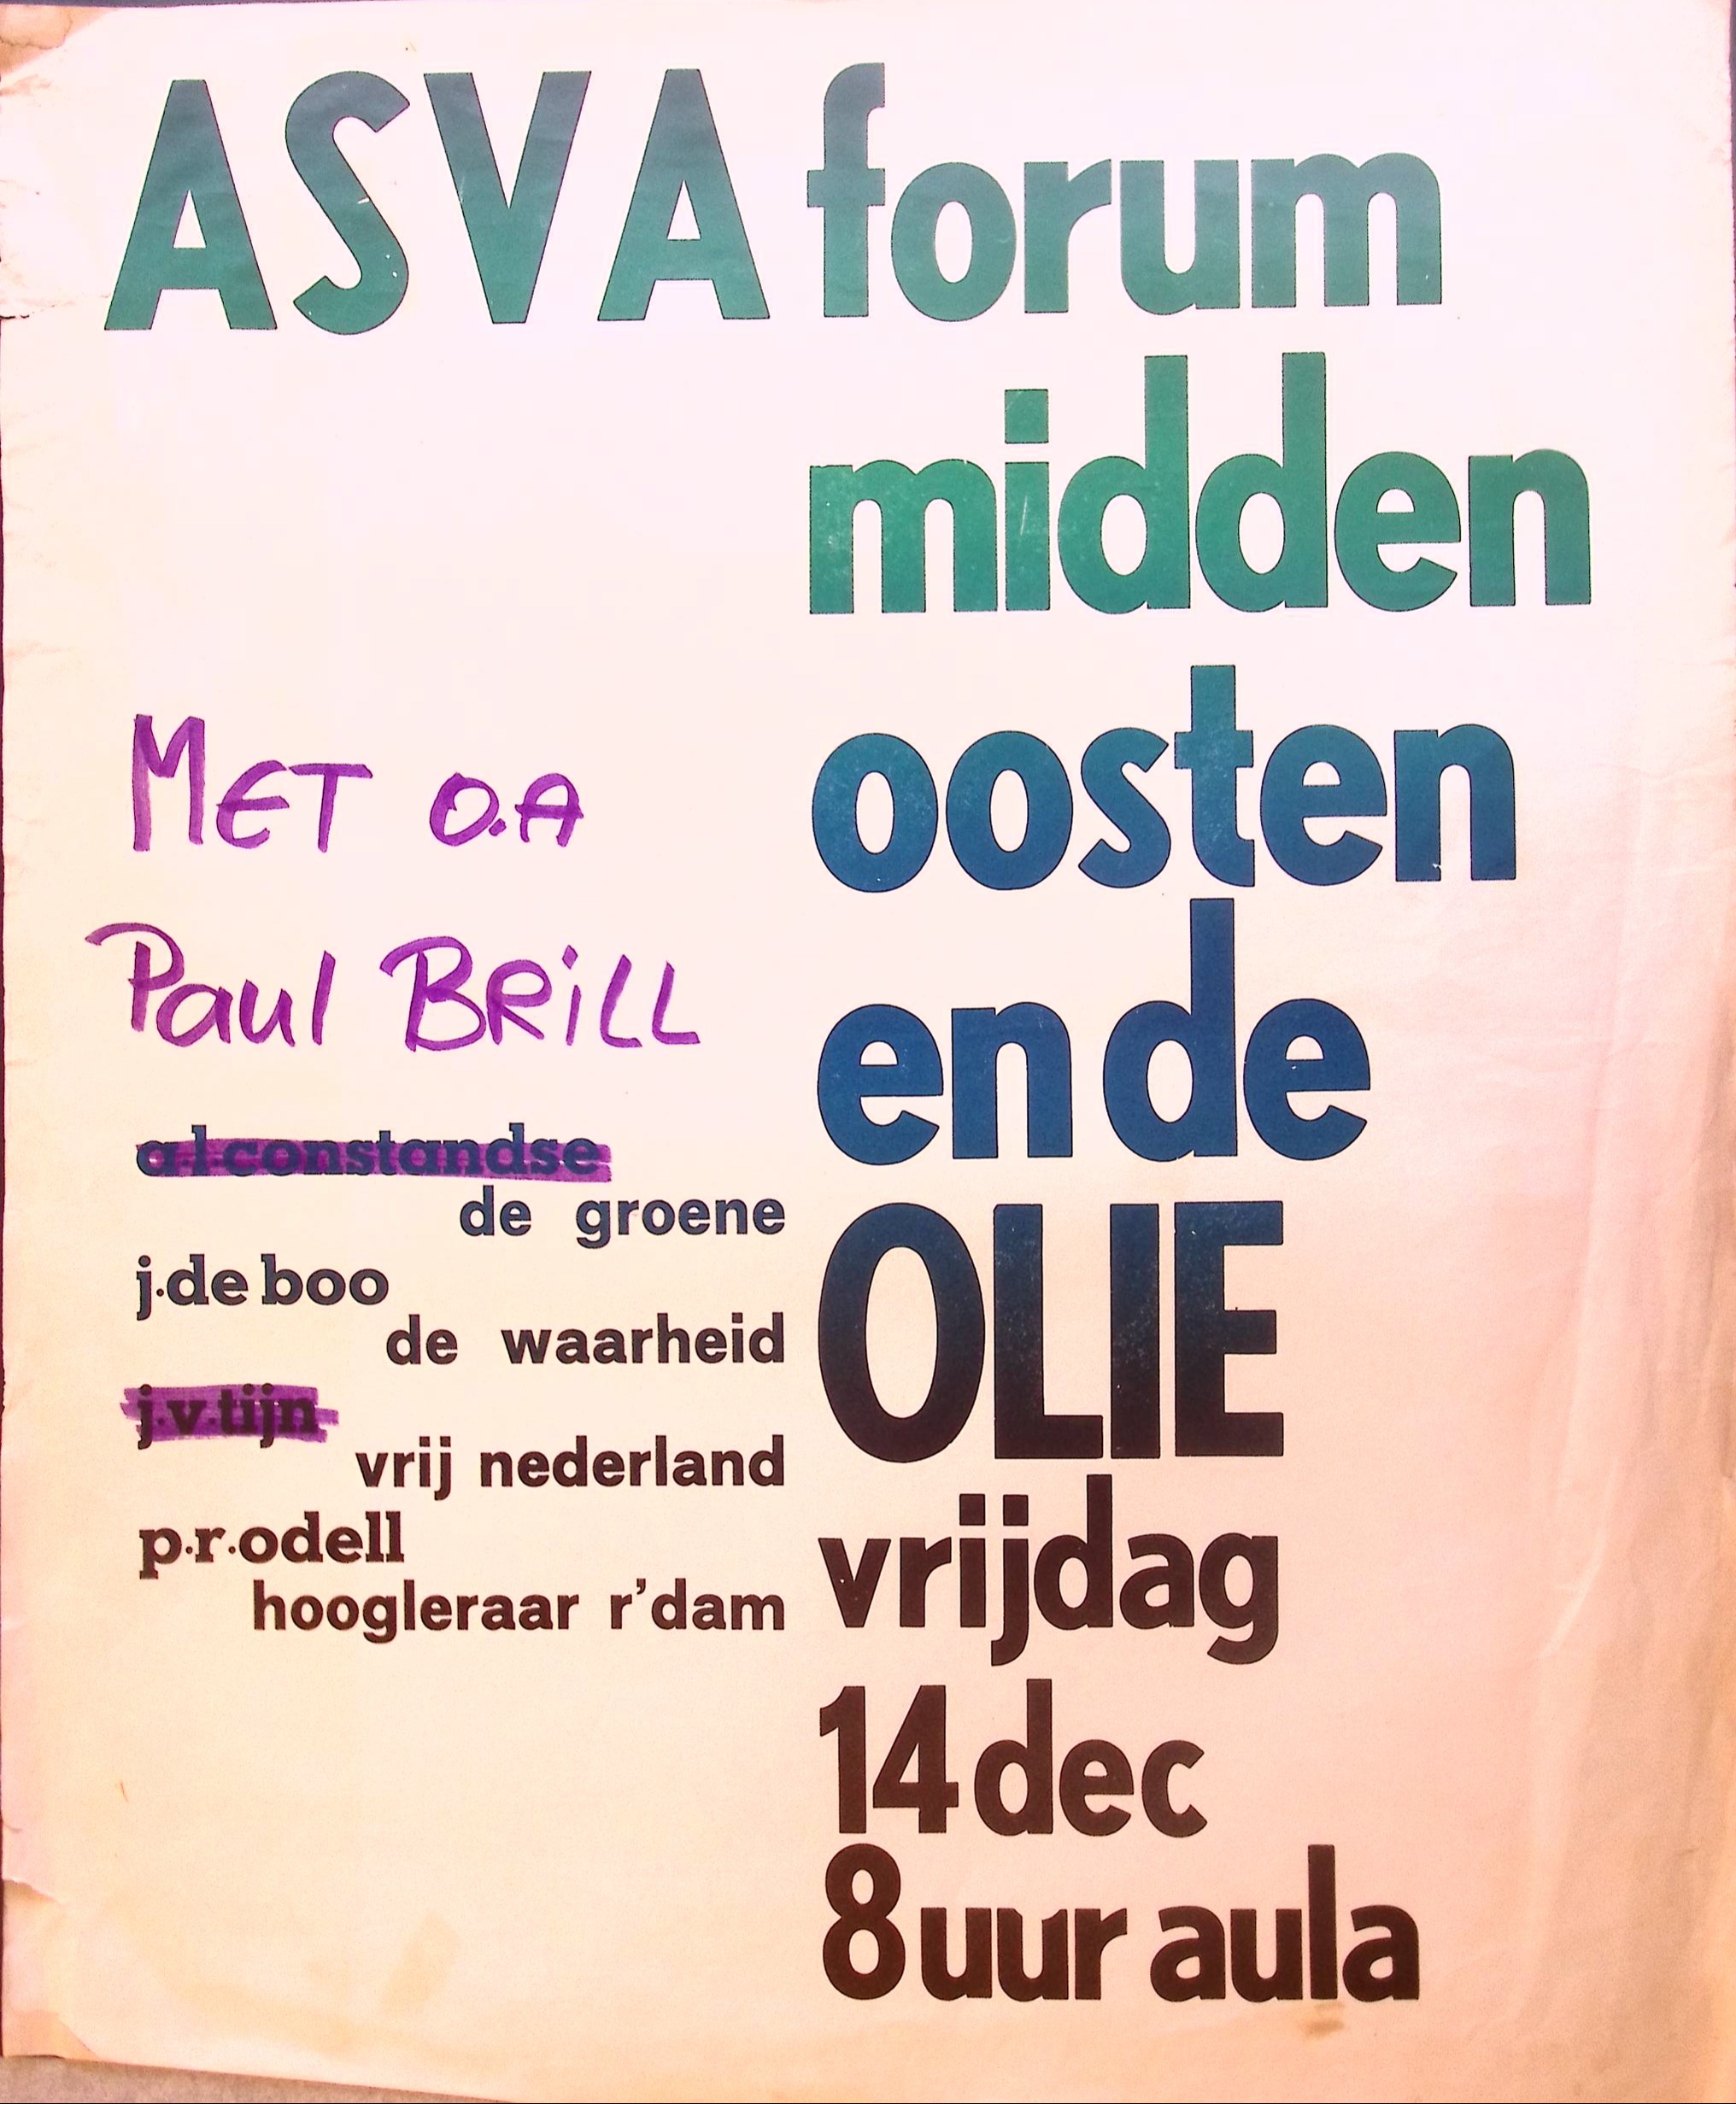 ASVA forum
midden
oosten
en de
OLIE
vrijdag
14 dec
8 uur aula
MET O.A
Paul BRiLL
a·l·constandse
de groene
j·de boo
de waarheid
j·v·tijn
vrij nederland
p·r·odell
hoogleraar r'dam